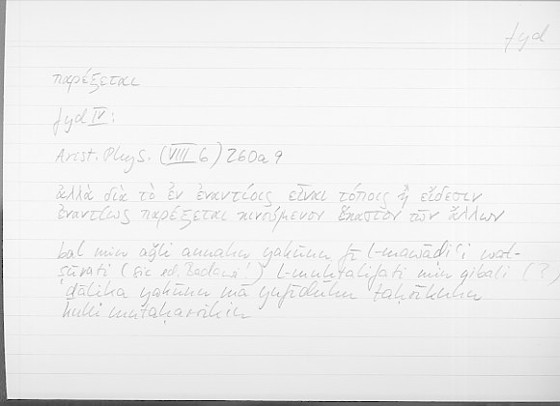 fyd
παρέξεται
fyd IV:
Arist. Phys. (VIII 6) 260a9
ἀλλὰ διὰ τὸ ἐν ἐναντίοις εἶναι τόποις ἢ εἴδεσιν
ἐναντίως παρέξεται κινούμενον ἕκαστον τῶν ἄλλων
bal min aǧli annahu yakūnu fī l-mawāḍiʿi waṣ-
ṣūrati (sic ed. Badawī) l-muḫtalifati min qibali (?)
ḏālika yakūnu mā yufīduhu taḥrīkuhu